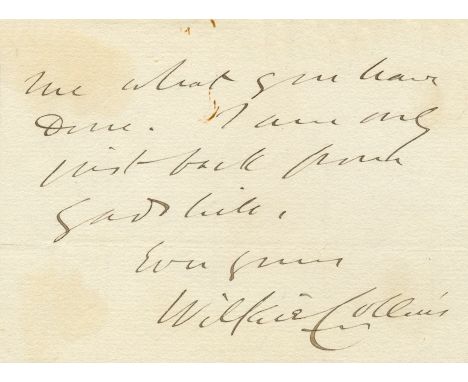 me what you have
done. I am only
just back from
Gadshill.
Ever yours
Wilkie Collins